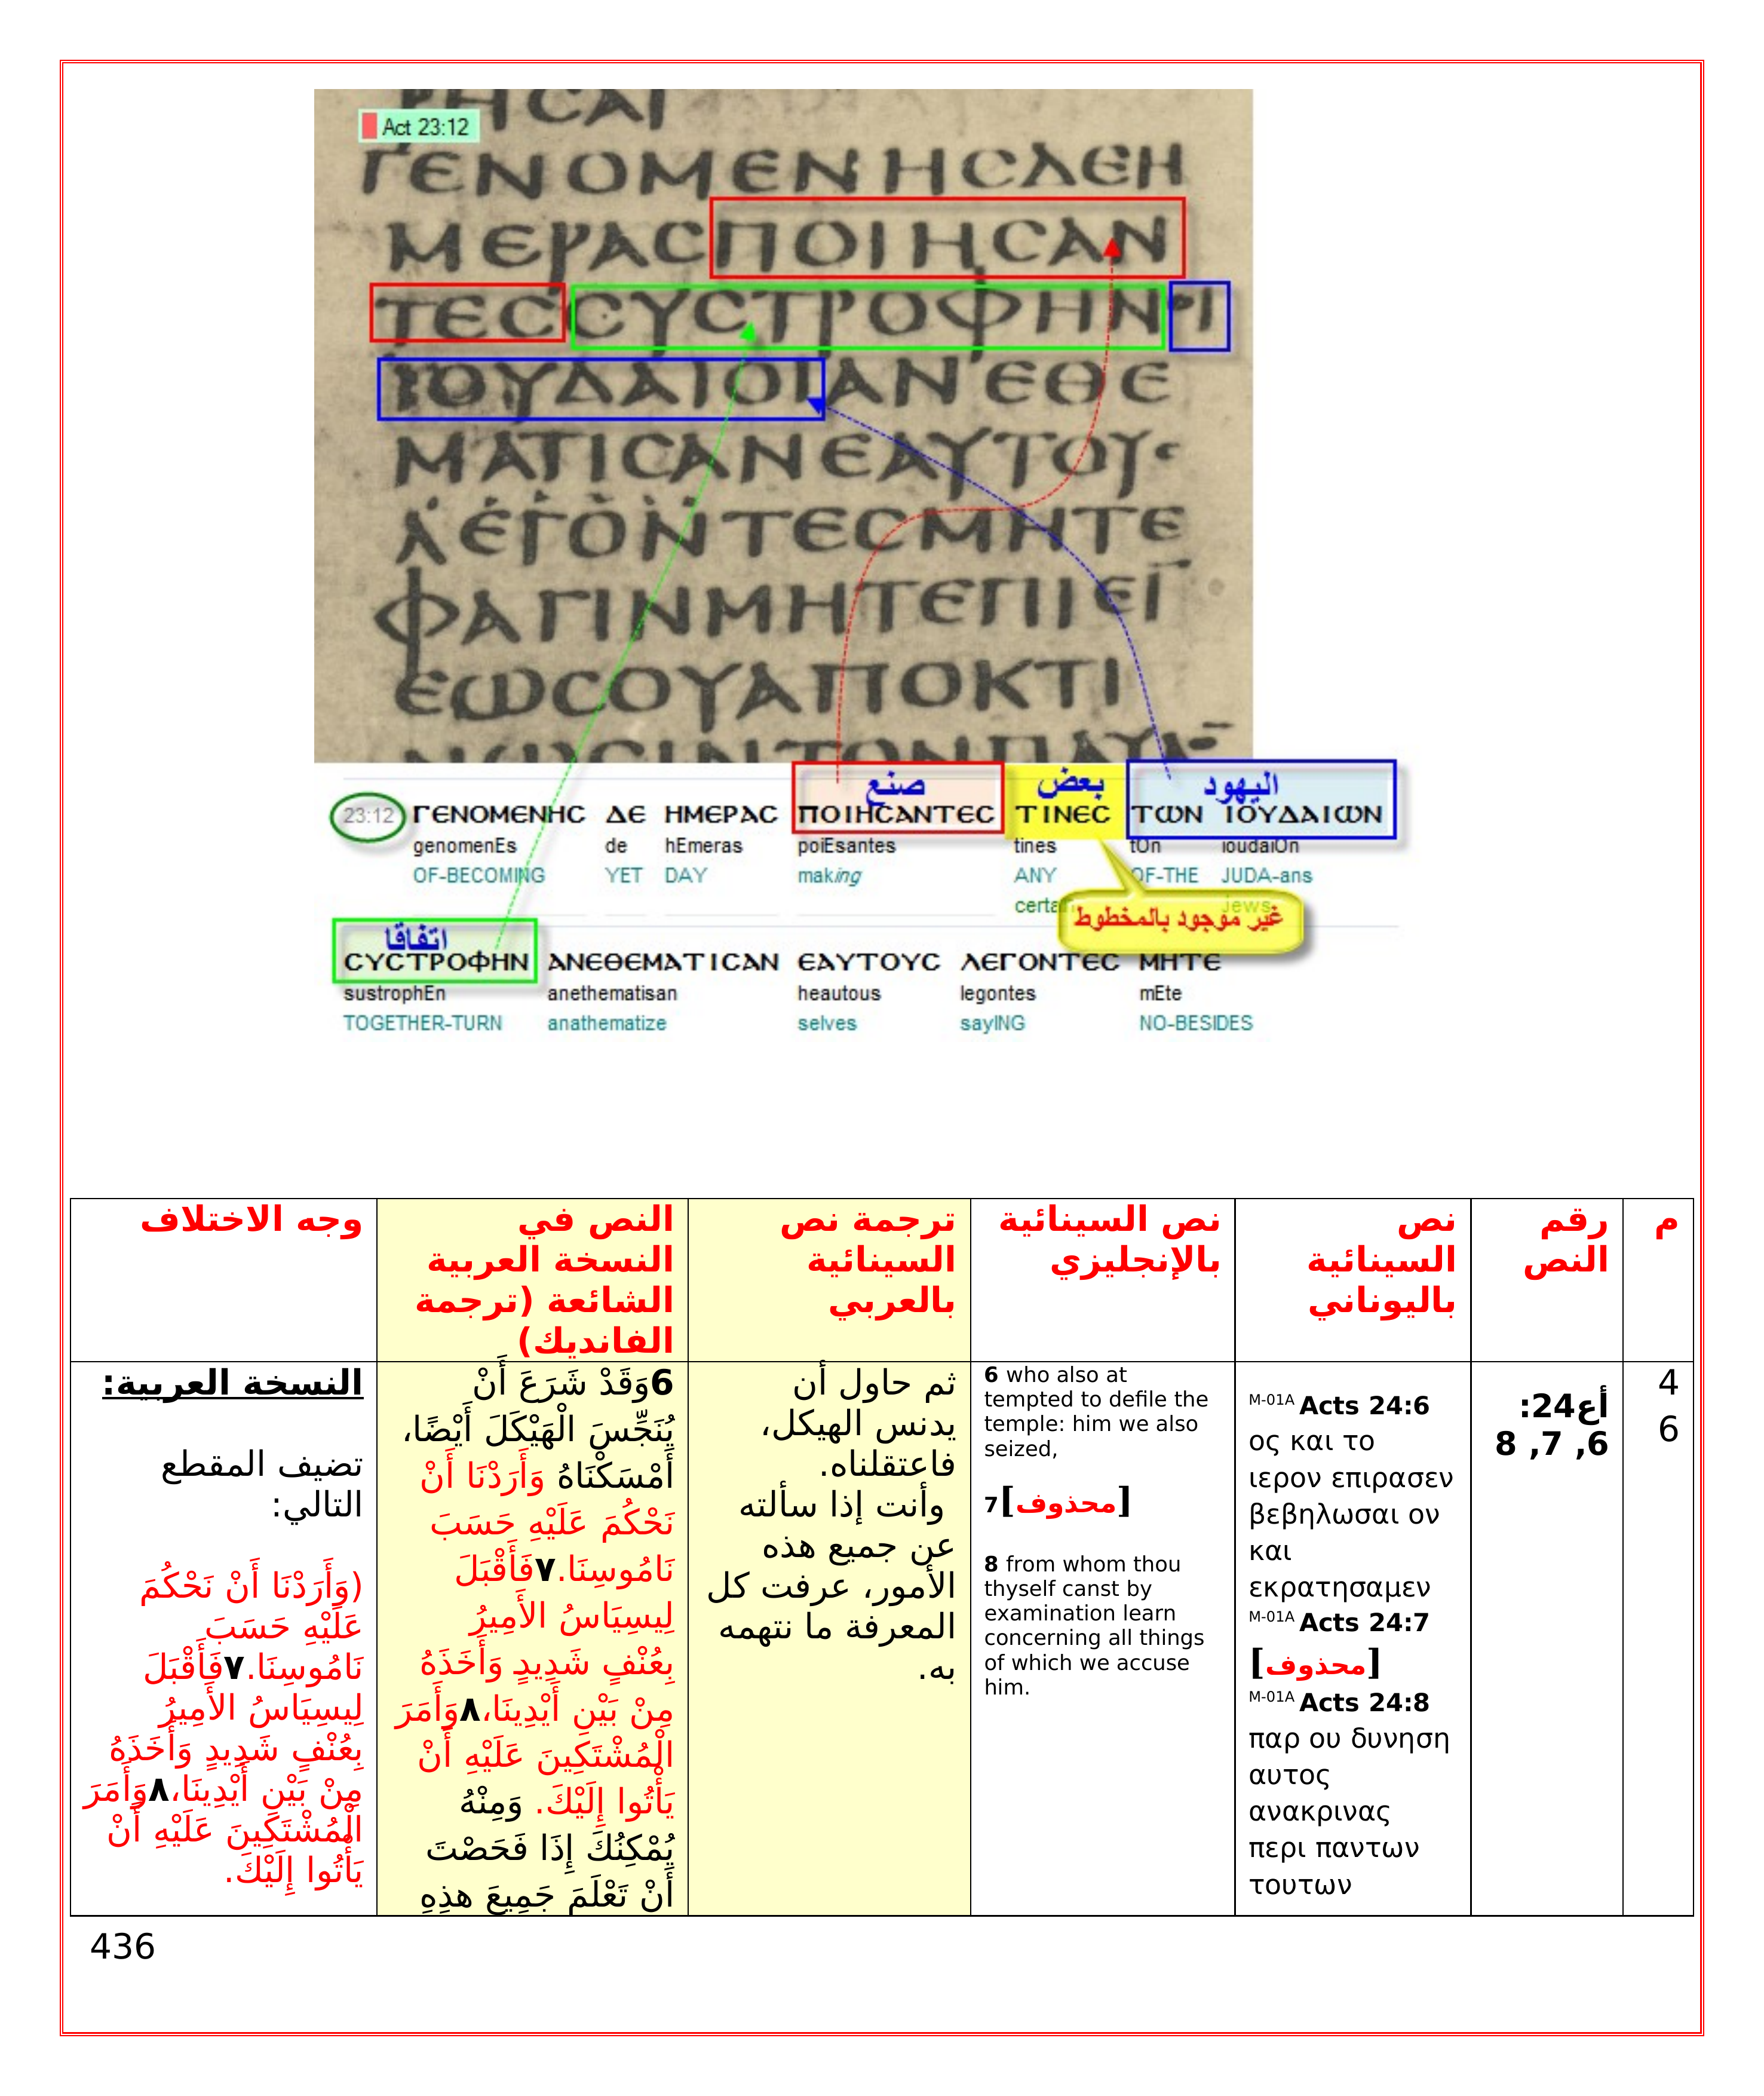 ΡΗCΑΙ
Act 23:12
ΓΕΝΟΜΕΝΗCΔΕΗ
ΜΕΡΑCΠΟΙΗCΑΝ
ΤΕCCΥCΤΡΟΦΗΝΟΙ
ΙΟΥΔΑΙΟΙΑΝΕΘΕ
ΜΑΤΙCΑΝΕΑΥΤΟΥC
ΛΕΓΟΝΤΕCΜΗΤΕ
ΦΑΓΙΝΜΗΤΕΠΙΕΙ
ΕΩCΟΥΑΠΟΚΤΙ
ΝΩCΙΝΤΟΝΠΑΥΛΟ
صنع بعض اليهود
23:12 ΓΕΝΟΜΕΝΗC ΔΕ ΗΜΕΡΑC ΠΟΙΗCΑΝΤΕC ΤΙΝΕC ΤΩΝ ΙΟΥΔΑΙΩΝ
genomenEs de hEmeras poiEsantes tines tOn ioudaiOn
OF-BECOMING YET DAY making ANY OF-THE JUDA-ans
certain Jews
غير موجود بالمخطوط
اتفاقا
CΥCΤΡΟΦΗΝ ΑΝΕΘΕΜΑΤΙCΑΝ ΕΑΥΤΟΥC ΛΕΓΟΝΤΕC ΜΗΤΕ
sustrophEn anethematisan heautous legontes mEte
TOGETHER-TURN anathematize selves sayING NO-BESIDES
م
رقم
النص
نص
السينائية
باليوناني
نص السينائية
بالإنجليزي
ترجمة نص
السينائية
بالعربي
النص في
النسخة العربية
الشائعة (ترجمة
الفانديك)
وجه الاختلاف
4
6
أع24:
6, 7, 8
M-01A Acts 24:6
ος και το
ιερον επιρασεν
βεβηλωσαι ον
και
εκρατησαμεν
M-01A Acts 24:7
[محذوف]
M-01A Acts 24:8
παρ ου δυνηση
αυτος
ανακρινας
περι παντων
τουτων
6 who also at
tempted to defile the
temple: him we also
seized,
7[محذوف]
8 from whom thou
thyself canst by
examination learn
concerning all things
of which we accuse
him.
ثم حاول أن
يدنس الهيكل،
فاعتقلناه.
وأنت إذا سألته
عن جميع هذه
الأمور، عرفت كل
المعرفة ما نتهمه
به.
6وَقَدْ شَرَعَ أَنْ
يُنَجِّسَ الْهَيْكَلَ أَيْضًا،
أَمْسَكْنَاهُ وَأَرَدْنَا أَنْ
نَحْكُمَ عَلَيْهِ حَسَبَ
نَامُوسِنَا.٧فَأَقْبَلَ
لِيسِيَاسُ الأَمِيرُ
بِعُنْفٍ شَدِيدٍ وَأَخَذَهُ
مِنْ بَيْنِ أَيْدِينَا،٨وَأَمَرَ
الْمُشْتَكِينَ عَلَيْهِ أَنْ
يَأْتُوا إِلَيْكَ. وَمِنْهُ
يُمْكِنُكَ إِذَا فَحَصْتَ
أَنْ تَعْلَمَ جَمِيعَ هذِهِ
النسخة العربية:
تضيف المقطع
التالي:
(وَأَرَدْنَا أَنْ نَحْكُمَ
عَلَيْهِ حَسَبَ
نَامُوسِنَا.٧فَأَقْبَلَ
لِيسِيَاسُ الأَمِيرُ
بِعُنْفٍ شَدِيدٍ وَأَخَذَهُ
مِنْ بَيْنِ أَيْدِينَا،٨وَأَمَرَ
الْمُشْتَكِينَ عَلَيْهِ أَنْ
يَأْتُوا إِلَيْكَ.
436